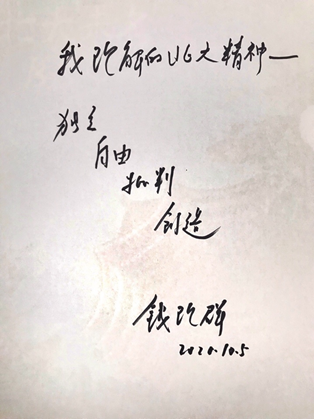 我理解的北大精神——
独立
自由
批判
创造
钱理群
2020.10.5